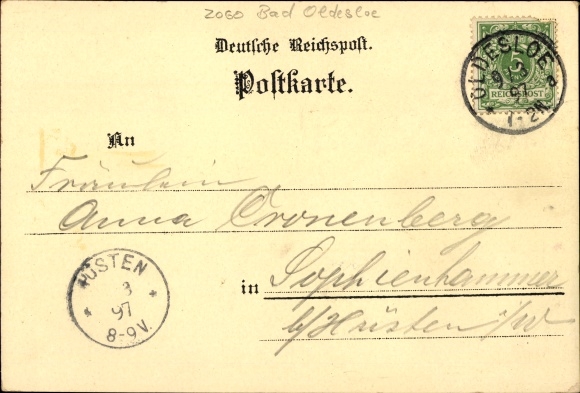 2060 Bad Oldesloe
Deutsche Reichspost.
Postkarte.
OLDESLOE
97
1-2N.
5
REICHSPOST
An
Fräulein
Anna Cronenberg
in Sophienhammer
b/Hüsten i/W
HÜSTEN
3
97
8-9V.